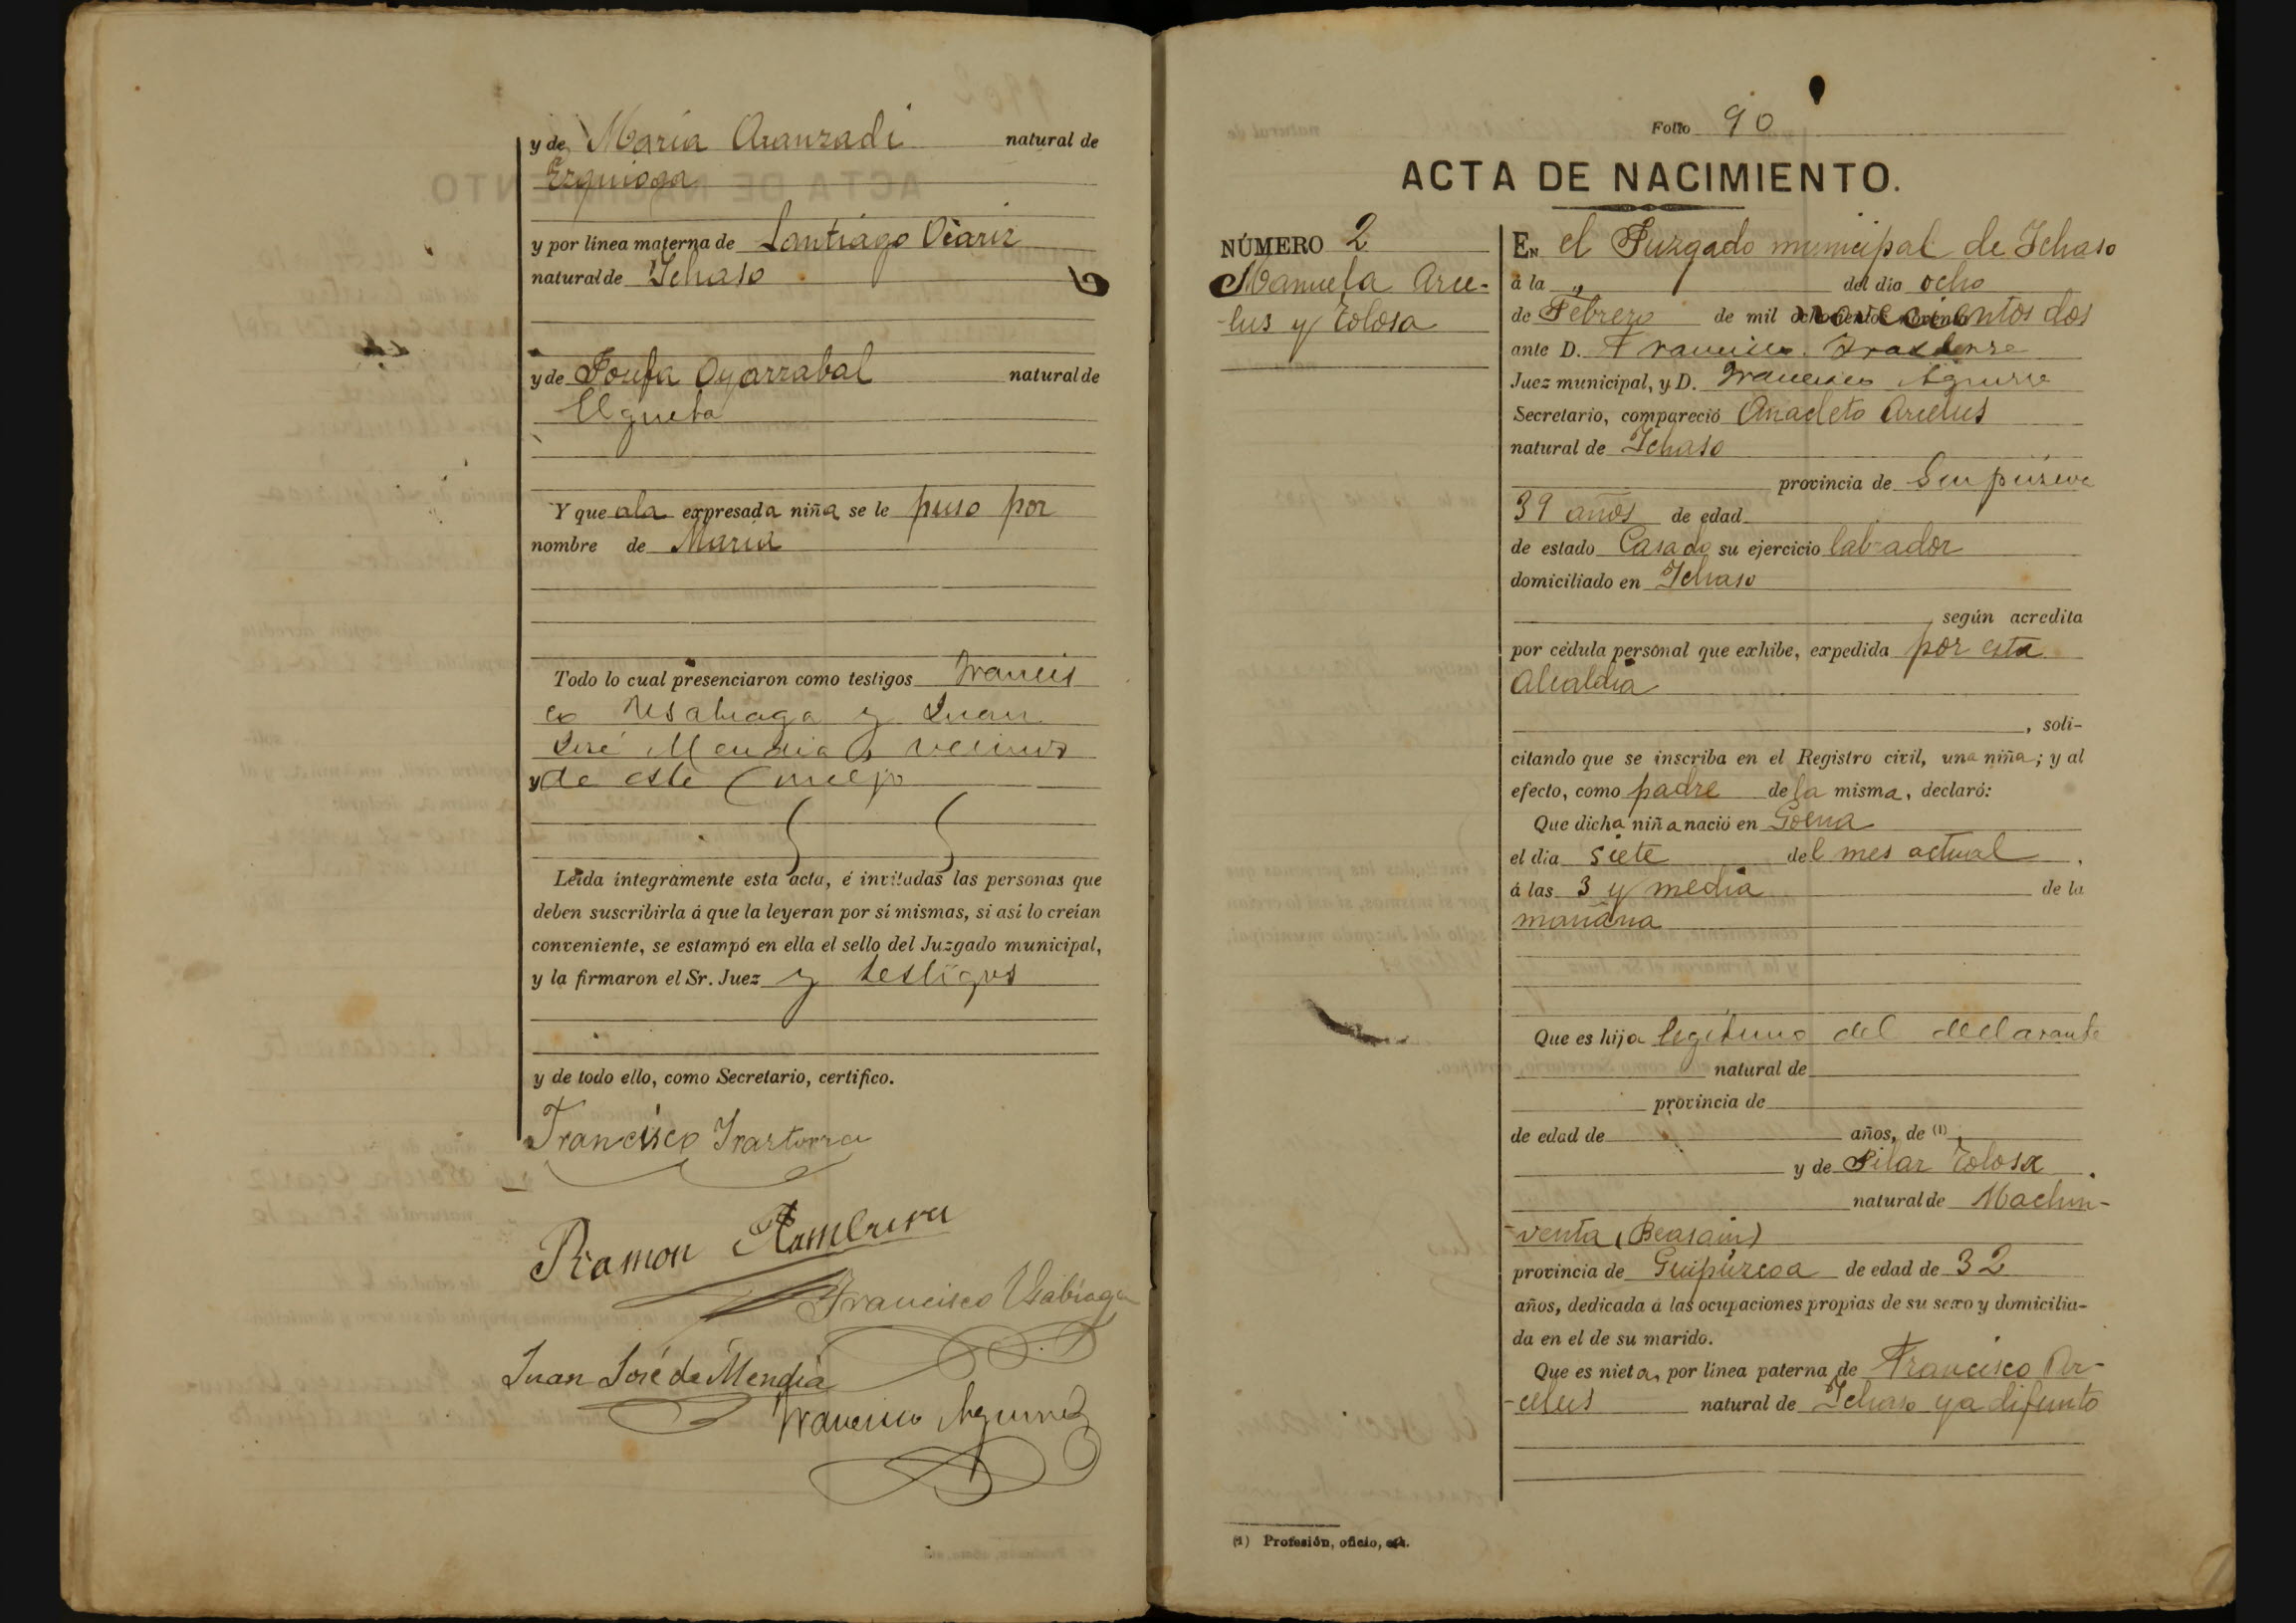 y de María Aranzadi natural de
Ezquioga
y por línea materna de Santiago Ocariz
natural de Ichaso
y de Josefa Oyarzabal natural de
Elgueta
Y que a la expresada niña se le puso por
nombre de María
Todo lo cual presenciaron como testigos Francis
co Usabiaga y Juan
José Mendia, vecinos
y de este Concejo
Leída íntegramente esta acta, é invitadas las personas que
deben suscribirla á que la leyeran por sí mismas, si así lo creían
conveniente, se estampó en ella el sello del Juzgado municipal,
y la firmaron el Sr. Juez y testigos
y de todo ello, como Secretario, certifico.
Francisco Irastorza
Ramon
Francisco Usabiaga
Juan José de Mendia
Francisco Aguirre
Folio 90
ACTA DE NACIMIENTO.
NÚMERO 2
Manuela Arce-
-lus y Tolosa
EN el Juzgado municipal de Ichaso
á la „ del día ocho
de Febrero de mil novecientos dos
ante D. Francisco Irastorza
Juez municipal, y D. Francisco Aguirre
Secretario, compareció Anacleto Arcelus
natural de Ichaso
provincia de Guipúzcoa
39 años de edad
de estado Casado su ejercicio labrador
domiciliado en Ichaso
, según acredita
por cédula personal que exhibe, expedida por esta
Alcaldia
, soli-
citando que se inscriba en el Registro civil, una niña; y al
efecto, como padre de la misma, declaró:
Que dicha niña nació en Goena
el día siete del mes actual ,
á las 3 y media de la
mañana
Que es hija legitimo del declarante
natural de
provincia de
de edad de años, de (1)
y de Pilar Tolosa .
natural de Machin-
-venta (Beasain)
provincia de Guipúzcoa de edad de 32
años, dedicada á las ocupaciones propias de su sexo y domicilia-
da en el de su marido.
Que es nieta, por línea paterna de Francisco Ar-
-celus natural de Ichaso ya difunto
(1) Profesión, oficio, etc.